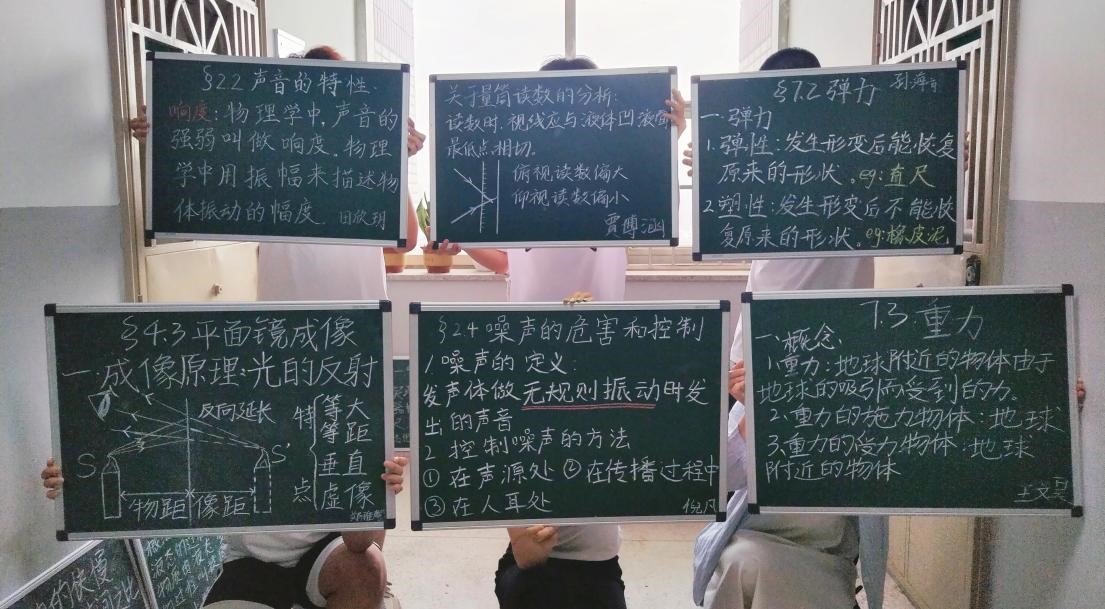 §2.2 声音的特性.
响度:物理学中,声音的
强弱叫做响度。物理
学中用振幅来描述物
体振动的幅度.
田欣玥
关于量筒读数的分析:
读数时,视线应与液体凹液面
最低点相切。
俯视读数偏大
仰视读数偏小
贾博涵
§7.2 弹力
一.弹力
1.弹性:发生形变后能恢复
原来的形状。eg:直尺
2.塑性:发生形变后不能恢
复原来的形状。eg:橡皮泥
§4.3 平面镜成像
一.成像原理:光的反射
反向延长
S
S'
物距 像距
特点
等大
等距
垂直
虚像
§2.4 噪声的危害和控制
1 噪声的定义:
发声体做无规则振动时发
出的声音
2 控制噪声的方法
① 在声源处 ② 在传播过程中
③ 在人耳处
倪凡
7.3 重力
一、概念、
1.重力:地球附近的物体由于
地球的吸引而受到的力。
2.重力的施力物体:地球
3.重力的受力物体:地球
附近的物体